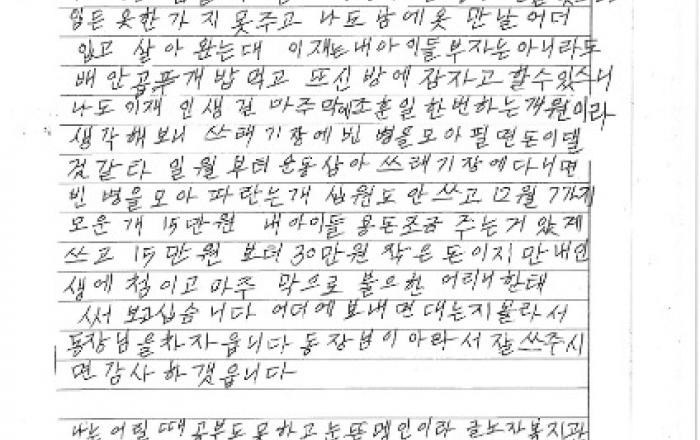 입든 옷한 가지 못주고 나도 남에 옷 만 날 어더
입고 살아 왔는대 이재는 내 아이들 부자는 아니라도
배 안곱푸개 밥 먹고 뜨신 방에 잠자고 할수 있스니
나도 이재 인생 길 마주막에 조흔 일 한번 하는개 원이라
생각해 보니 쓰래기장에 빈 병을 모아 필면 돈이 댈
것 같다 일월 부터 운동삼아 쓰래기장에 다니면
빈 병을 모아 파란는개 십원도 안 쓰고 12월 7까지
모운 개 15만원 내 아이들 용돈 조금 주는거 았계
쓰고 15만원 보터 30만원 작은 돈이지만 내 인
생에 첨이고 마주 막으로 불으한 어리니 한태
써 보고 십습니다 어더에 보내면 대는지 몰라서
동장님을 차자 읍니다 동장님이 아라서 잘 쓰주시
면 감사 하갯읍니다
나는 어릴 때 공부도 못하고 눈뜬 멩인이라 글노자 복지관